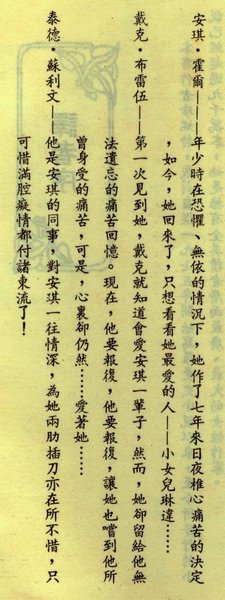 安琪·霍爾——年少時在恐懼、無依的情況下，她作了七年來日夜椎心痛苦的決定
，如今，她回來了，只想看看她最愛的人——小女兒琳達……
戴克·布雷伍——第一次見到她，戴克就知道會愛安琪一輩子，然而，她卻留給他無
法遺忘的痛苦回憶。現在，他要報復，他要報復，讓她也嚐到他所
曾身受的痛苦，可是，心裏卻仍然……愛著她……
泰德·蘇利文——他是安琪的同事，對安琪一往情深，為她兩肋插刀亦在所不惜，只
可惜滿腔癡情都付諸東流了！